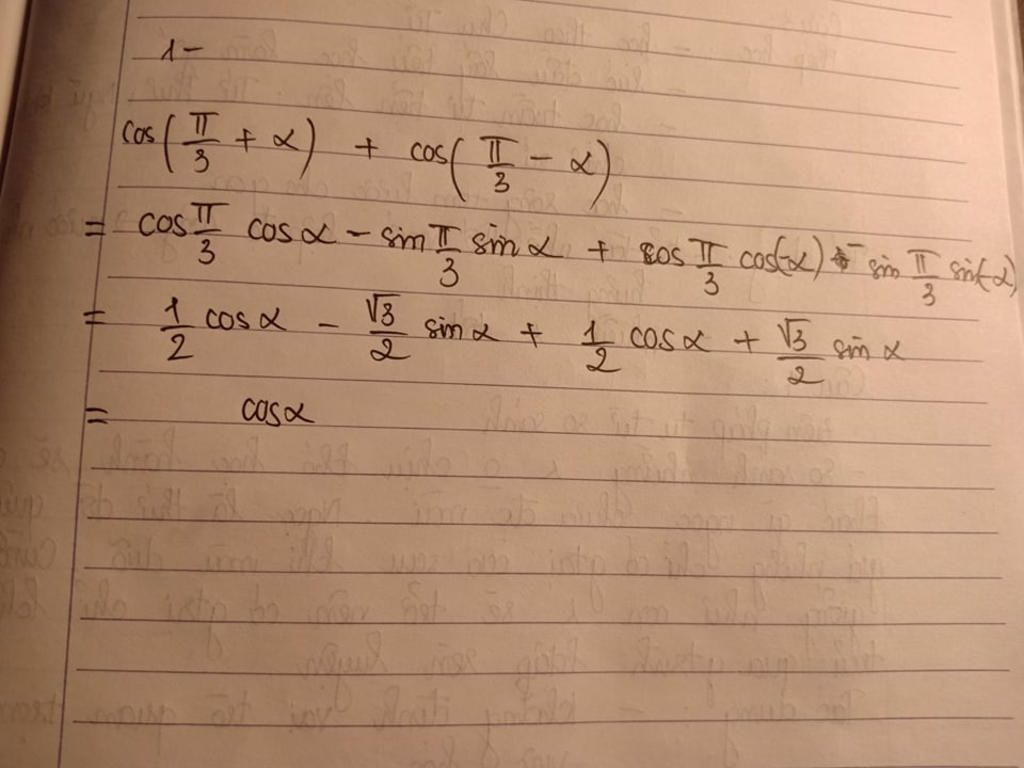 1-
cos(π/3 + α) + cos(π/3 - α)
= cos π/3 cos α - sin π/3 sin α + cos π/3 cos(-α) - sin π/3 sin(-α)
= 1/2 cos α - √3/2 sin α + 1/2 cos α + √3/2 sin α
= cos α